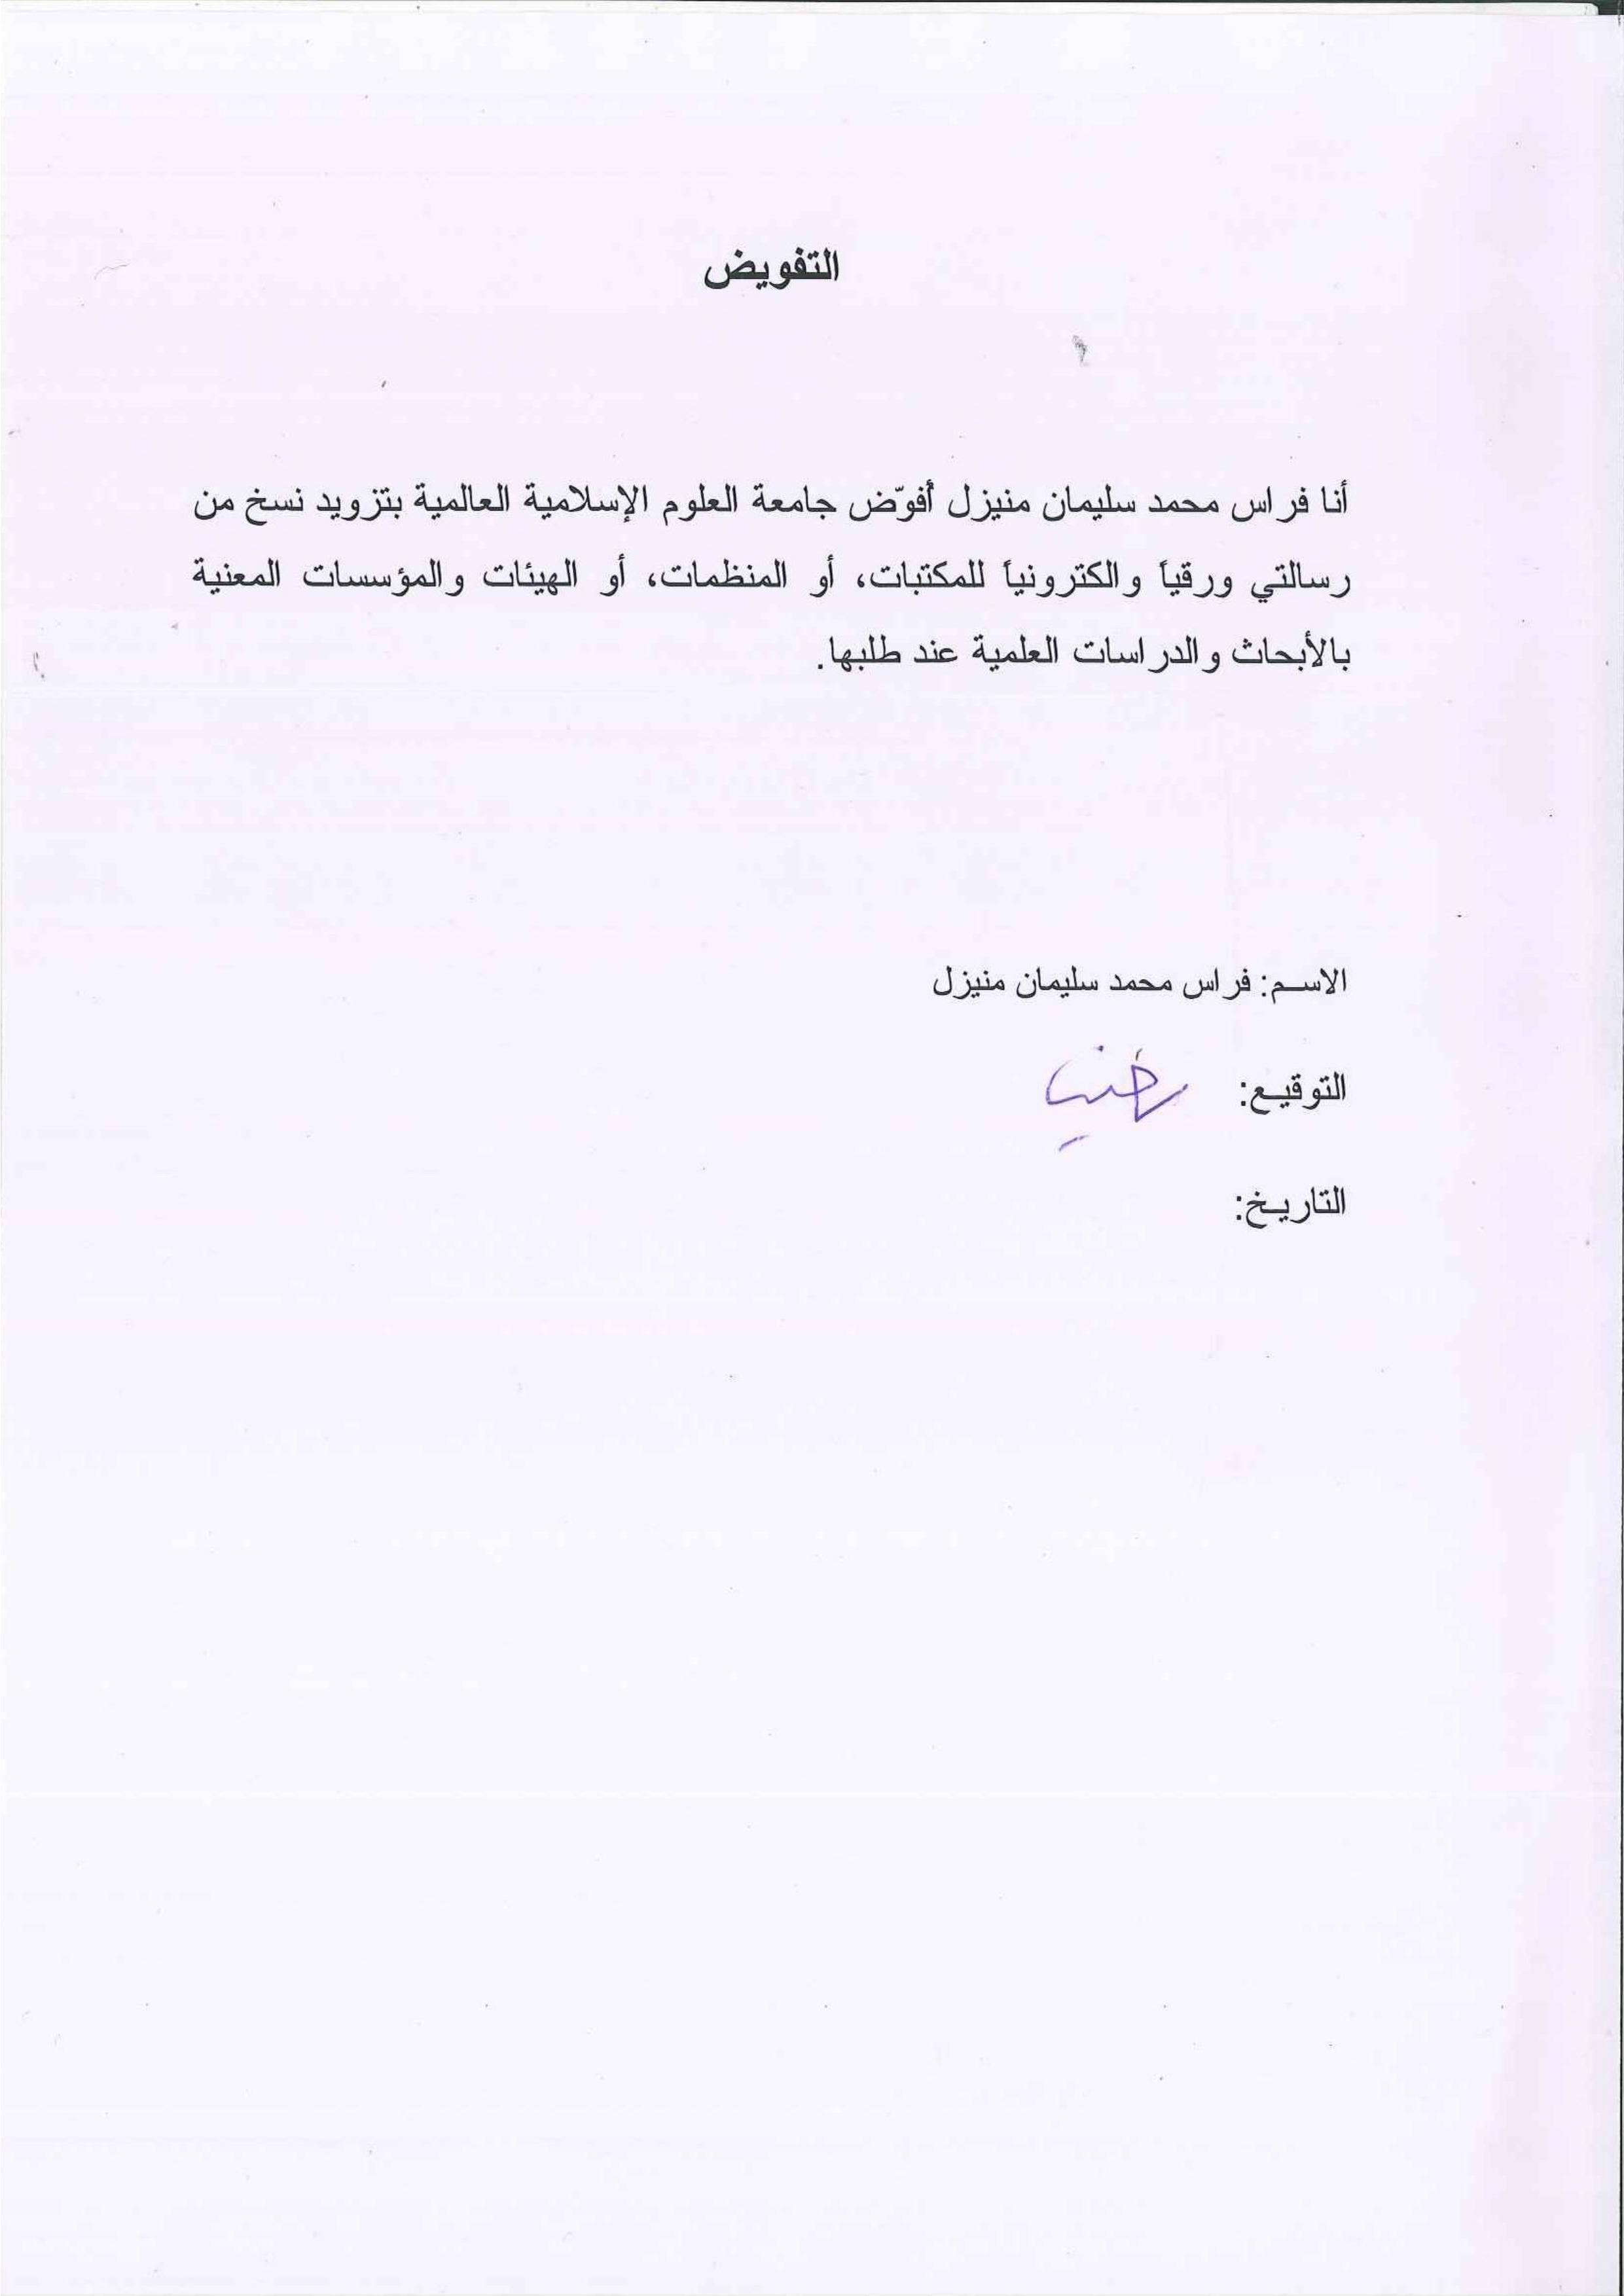 التفويض
أنا فراس محمد سليمان منيزل أفوّض جامعة العلوم الإسلامية العالمية بتزويد نسخ من
رسالتي ورقياً والكترونياً للمكتبات، أو المنظمات، أو الهيئات والمؤسسات المعنية
بالأبحاث والدراسات العلمية عند طلبها.
الاسم: فراس محمد سليمان منيزل
التوقيع:
التاريخ: